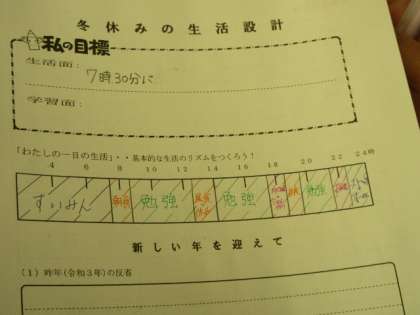 冬休みの生活設計
私の目標
生活面:
7時30分に
学習面:
「わたしの一日の生活」・・基本的な生活のリズムをつくろう!
4 6 8 10 12 14 16 18 20 22 24時
すいみん 朝食 勉強 昼食 勉強 勉強
新しい年を迎えて
(1) 昨年(令和3年)の反省